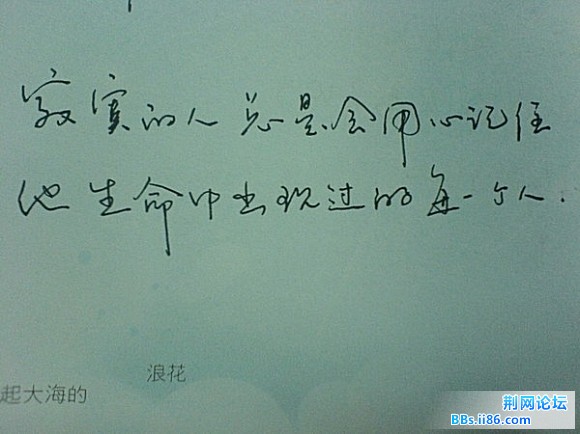 寂寞的人总是会用心记住
他生命中出现过的每一个人.
浪花
起大海的
荆网论坛
BBs.ii86.com